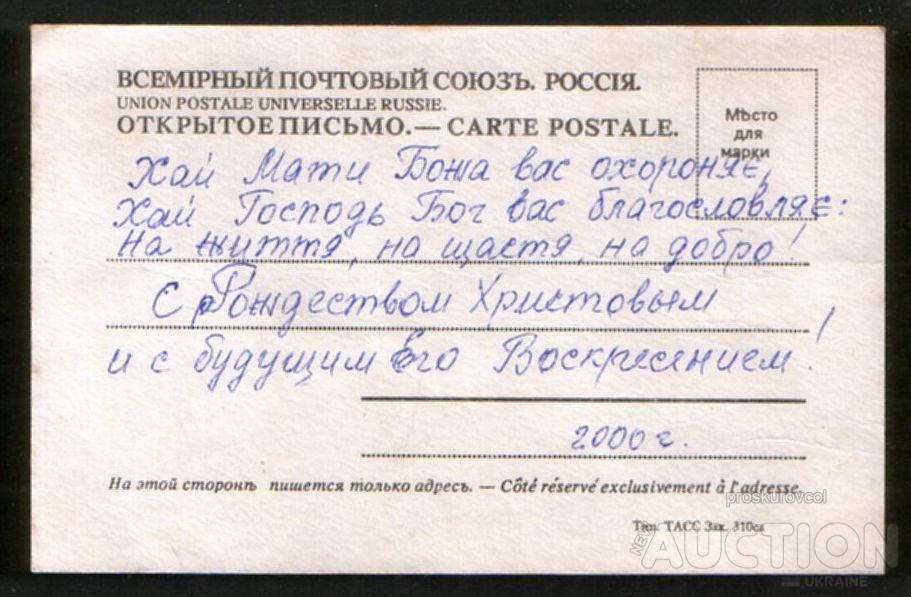 ВСЕМІРНЫЙ ПОЧТОВЫЙ СОЮЗЪ. РОССІЯ.
UNION POSTALE UNIVERSELLE RUSSIE.
ОТКРЫТОЕ ПИСЬМО.— CARTE POSTALE.
Мѣсто
для
марки
Хай Мати Божа вас охороняє,
Хай Господь Бог вас благословляє:
на життя, на щастя, на добро!
С Рождеством Христовым
и с будущим Его Воскресением!
2000 г.
На этой сторонѣ пишется только адресъ. — Côté réservé exclusivement à l'adresse.
proskurovcol
Тип. ТАСС Зак. 310са
NEW AUCTION
UKRAINE